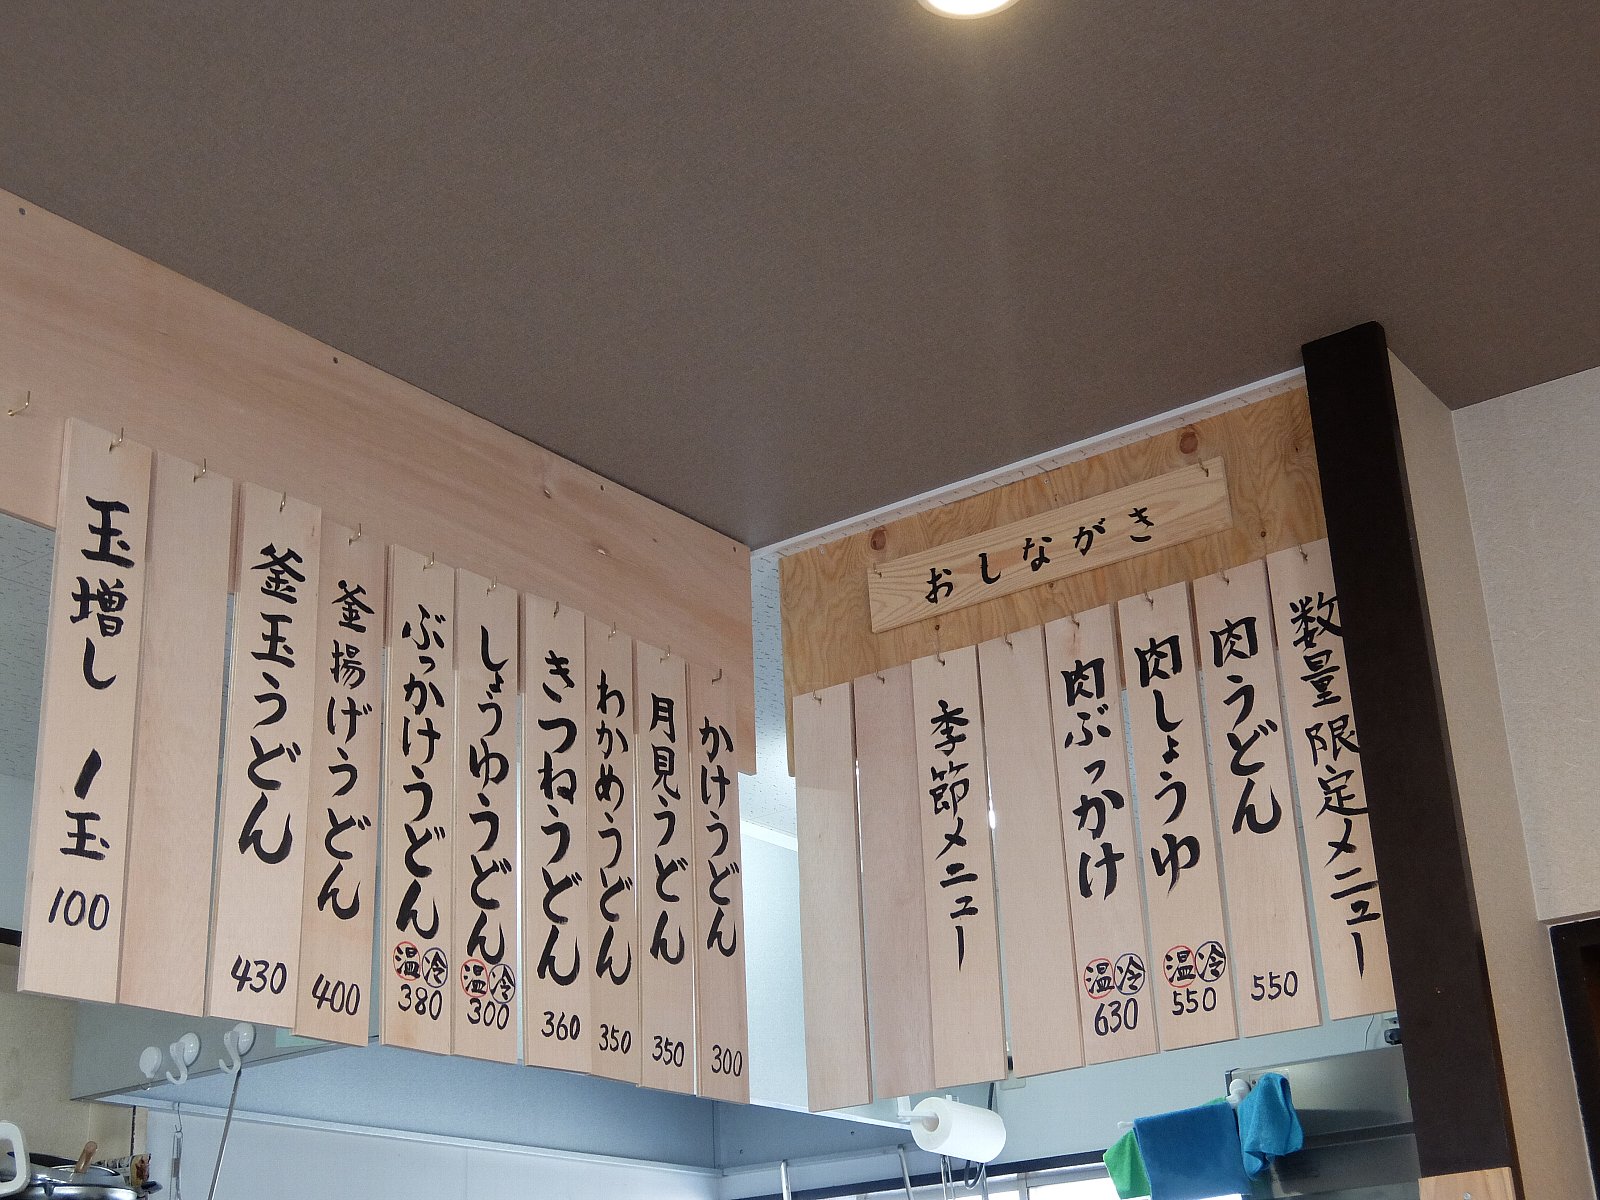 おしながき
数量限定メニュー
肉うどん
550
肉しょうゆ
温 冷
550
肉ぶっかけ
温 冷
630
季節メニュー
かけうどん
300
月見うどん
350
わかめうどん
350
きつねうどん
360
しょうゆうどん
温 冷
300
ぶっかけうどん
温 冷
380
釜揚げうどん
400
釜玉うどん
430
玉増し 1玉
100